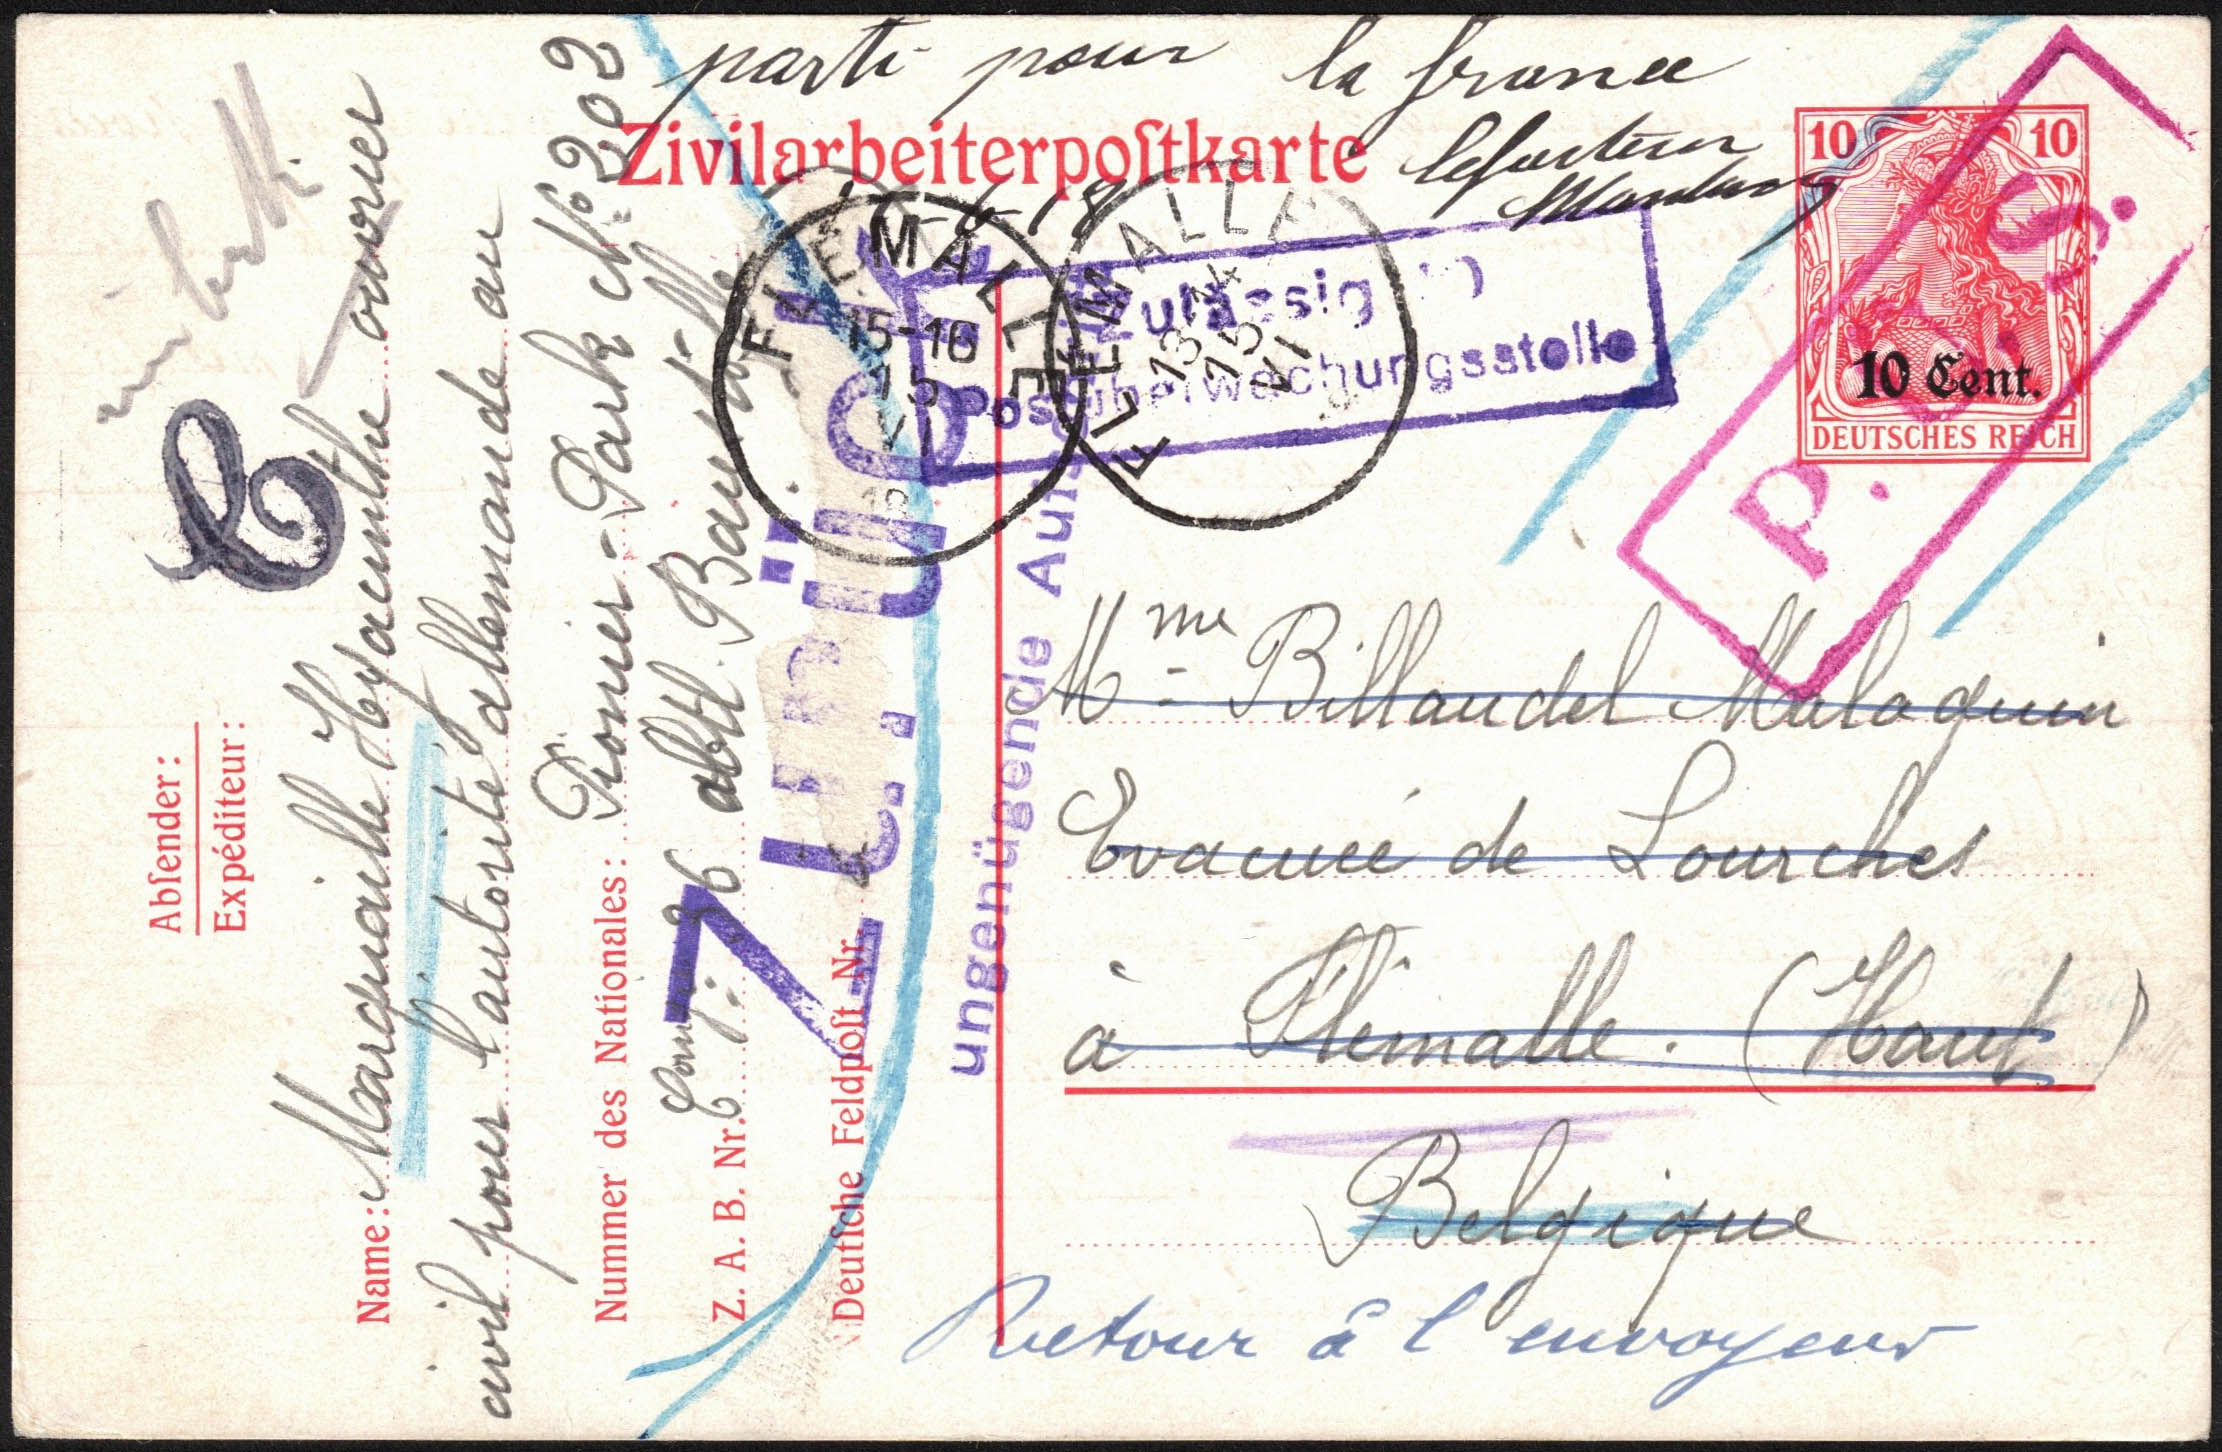 parti pour la france
Zivilarbeiterpoſtkarte
lefacteur
-6-18
10 10
10 Cent.
DEUTSCHES REICH
P. S.
FLEMALLE
15-16
15
VI
18
FLEMALLE
13-14
15
VI
Unzulässig
Postüberwachungsstelle
Zurück
ungenügende
Mme Billaudel Malaquin
Evacué de Lourches
à Flémalle. (Haut)
Belgique
Retour à l'envoyeur
Abſender:
Expéditeur:
C
Name: Marquaille Hyacinthe ouvrier
civil pour l'autorité allemande au
Pionier-Park No 202
Nummer des Nationales:
Comp: 36 abtl.
Z. A. B. Nr.
Deutſche Feldpoſt-Nr.